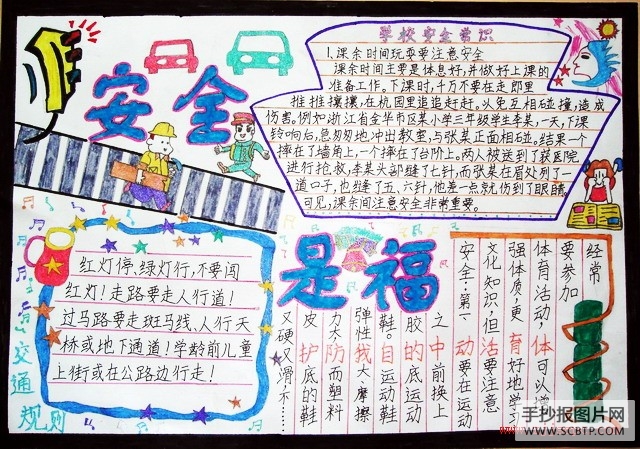 安全
是福
学校安全常识
1、课余时间玩耍要注意安全
课余时间主要是休息好,并做好上课的
准备工作。下课时,千万不要在走郎里
推推攘攘,在校园里追追赶赶。以免互相碰撞,造成
伤害。例如浙江省金华市区某小学三年级学生李某,一天,下课
铃响后,急匆匆地冲出教室,与张某正面相碰。结果一个
摔在了墙角上,一个摔在了台阶上。两人被送到了医院
进行抢救,李某头部缝了七针,而张某在眉处列了一
道口子,也缝了五、六针,他差一点就伤到了眼睛
可见,课余间注意安全非常重要。
红灯停、绿灯行,不要闯
红灯!走路要走人行道!
过马路要走斑马线、人行天
桥或地下通道!学龄前儿童
上街或在公路边行走!
交通规则
经常
要参加
体育活动,体可以增
强体质,更育好地学习
文化知识,但活要注意
安全:第一动要在运动
之中前换上
胶的底的运动
鞋。自运动鞋
弹性我大、摩擦
力大防而塑料
皮护底的鞋
又硬又滑不……
手抄报图片网
WWW.SCBTP.COM